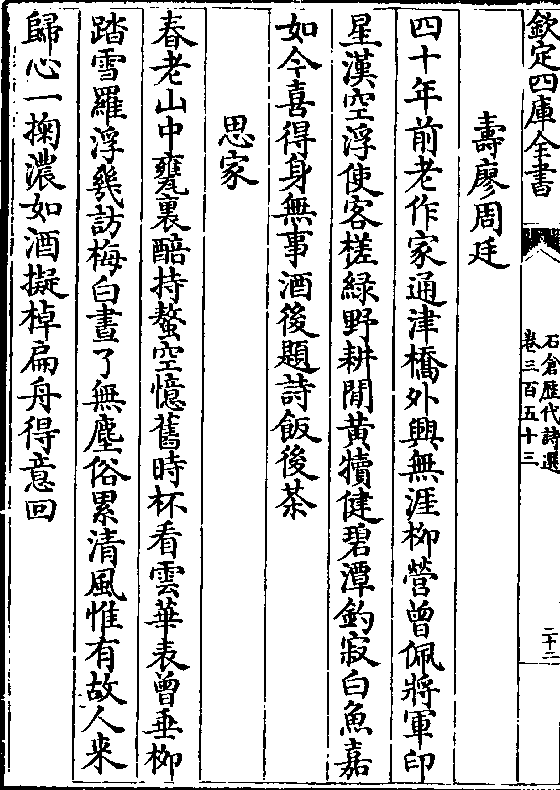 欽定四庫全書
石倉歷代詩選
卷三百五十三
二十二
壽廖周廷
四十年前老作家通津橋外興無涯柳營曾佩將軍印
星漢空浮使客槎綠野耕閒黃犢健碧潭釣寂白魚嘉
如今喜得身無事酒後題詩飯後茶
思家
春老山中甕裏醅持螯空憶舊時杯看雲華表曾垂柳
踏雪羅浮幾訪梅白晝了無塵俗累清風惟有故人来
歸心一掬濃如酒擬棹扁舟得意回